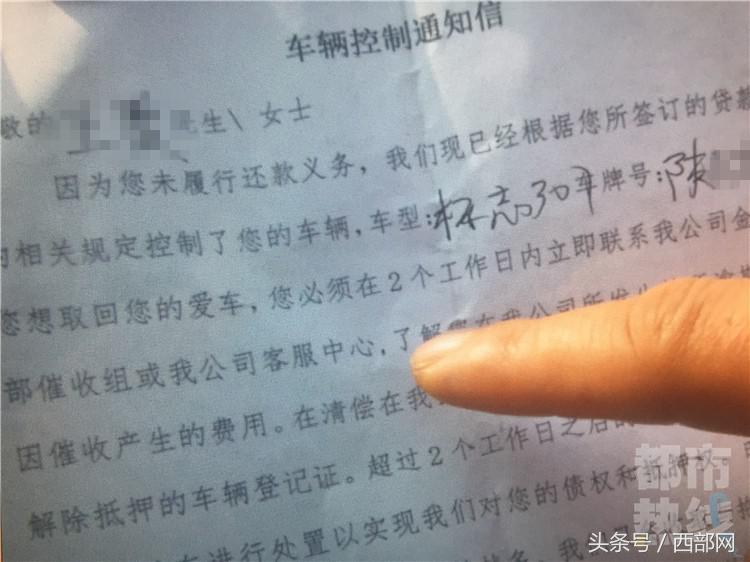 车辆控制通知信
敬的 先生\ 女士
因为您未履行还款义务，我们现已经根据您所签订的贷款
的相关规定控制了您的车辆，车型：标志307 车牌号：陕
您想取回您的爱车，您必须在2个工作日内立即联系我公司金
部催收组或我公司客服中心，了解您在我公司所发
因催收产生的费用。在清偿在我
解除抵押的车辆登记证。超过2个工作日之后的
进行处置以实现我们对您的债权和抵押权。
都市热线
头条号／西部网